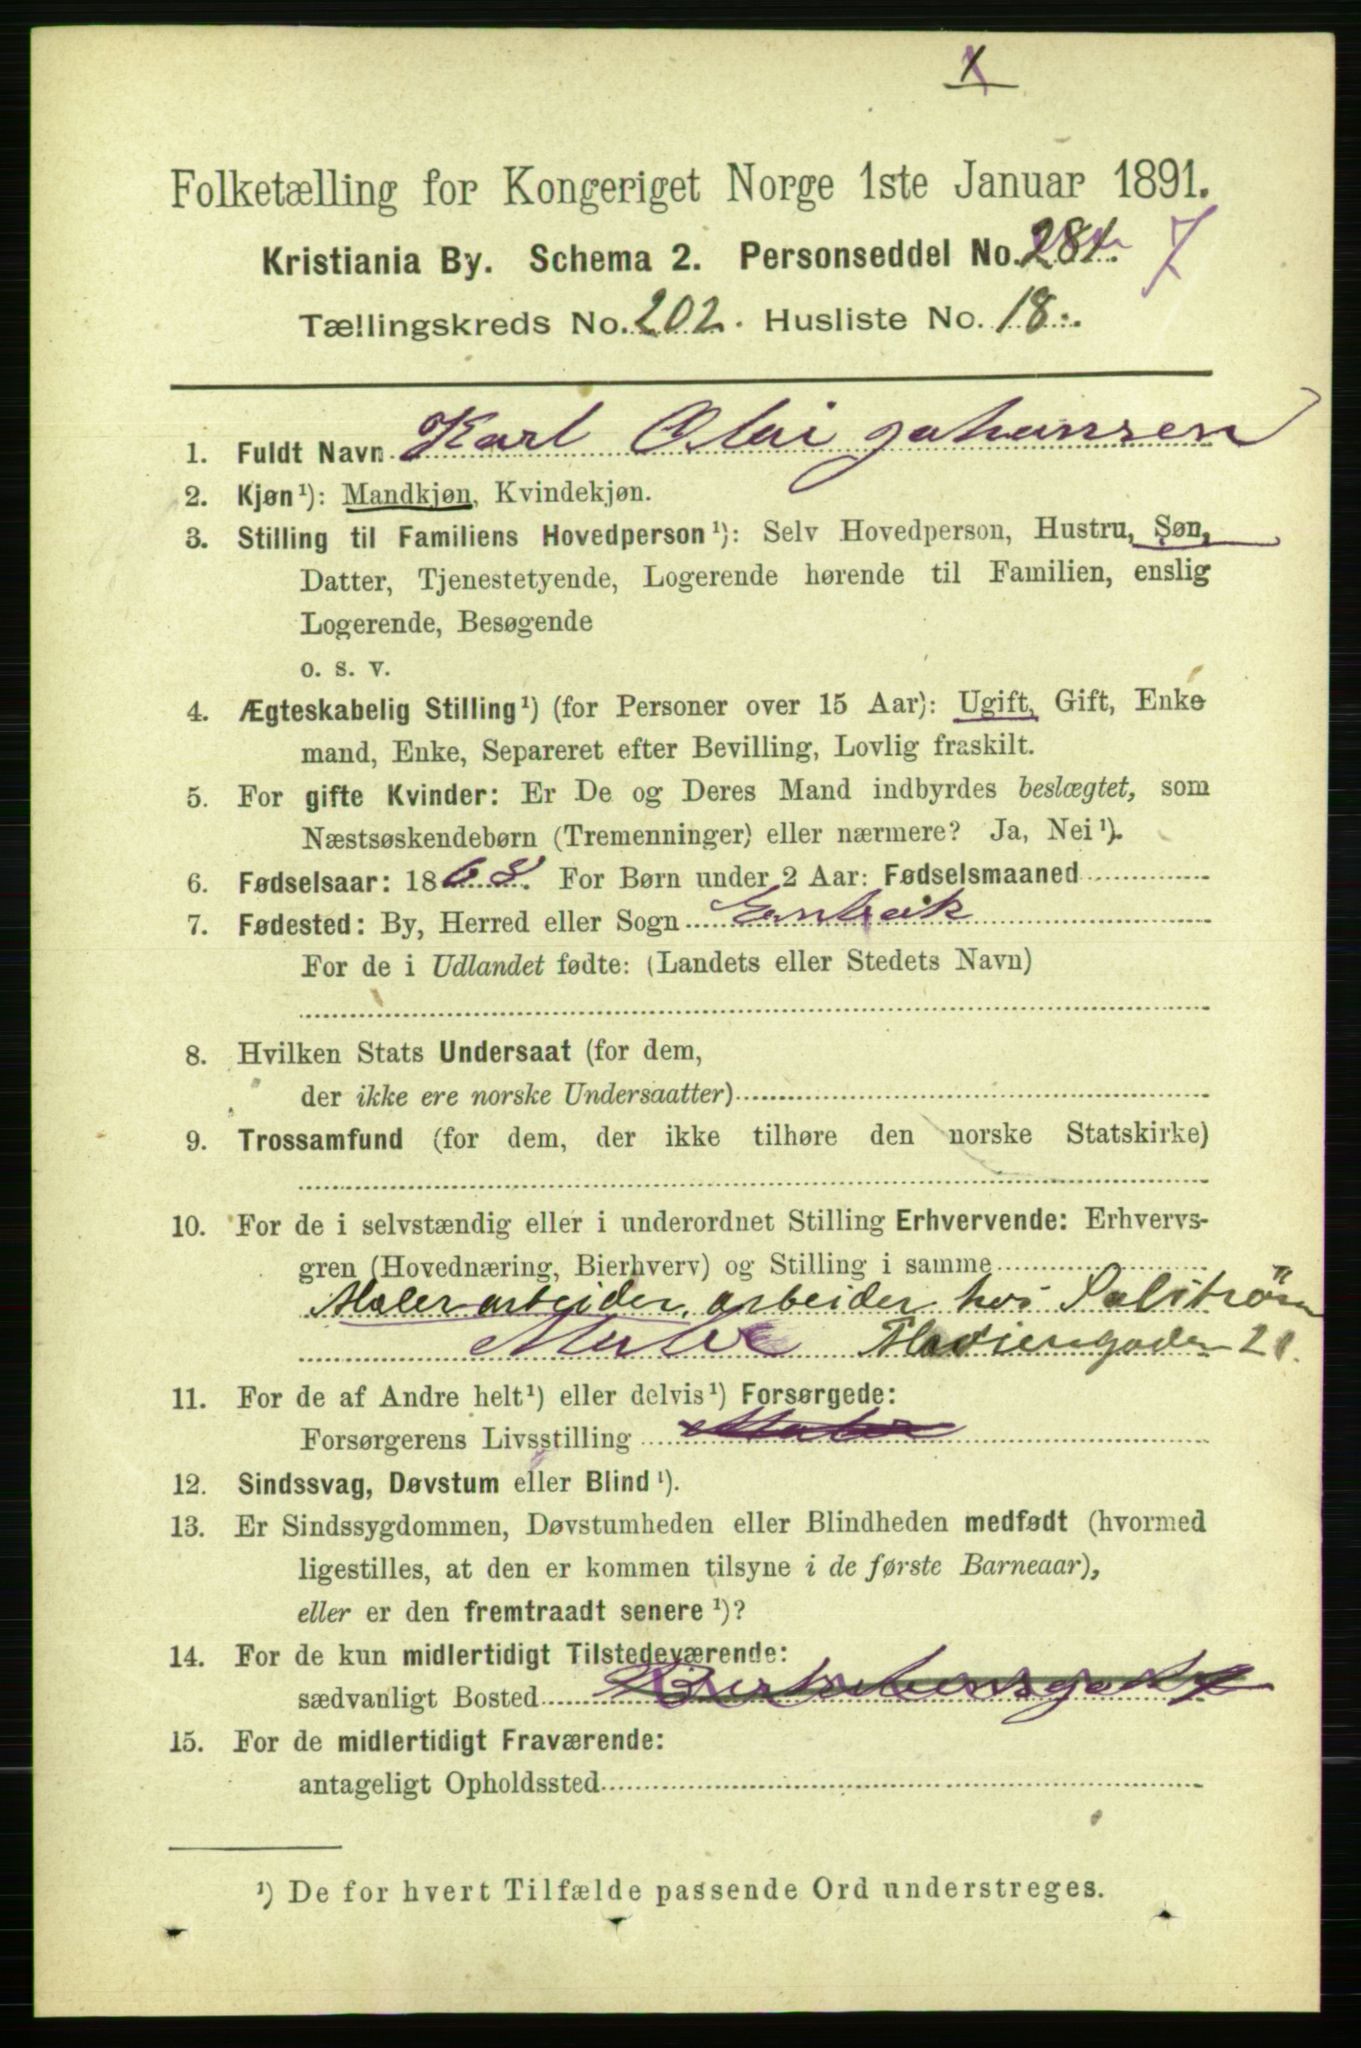 x
Folketælling for Kongeriget Norge 1ste Januar 1891.
Kristiania By. Schema 2. Personseddel No. 284. 7
Tællingskreds No. 202. Husliste No. 18.
1. Fuldt Navn Karl Olai Johansen
2. Kjøn¹): Mandkjøn, Kvindekjøn.
3. Stilling til Familiens Hovedperson¹): Selv Hovedperson, Hustru, Søn,
Datter, Tjenestetyende, Logerende hørende til Familien, enslig
Logerende, Besøgende
o. s. v.
4. Ægteskabelig Stilling¹) (for Personer over 15 Aar): Ugift, Gift, Enke-
mand, Enke, Separeret efter Bevilling, Lovlig fraskilt.
5. For gifte Kvinder: Er De og Deres Mand indbyrdes beslægtet, som
Næstsøskendebørn (Tremenninger) eller nærmere? Ja, Nei¹).
6. Fødselsaar: 1868. For Børn under 2 Aar: Fødselsmaaned
7. Fødested: By, Herred eller Sogn Enebak
For de i Udlandet fødte: (Landets eller Stedets Navn)
8. Hvilken Stats Undersaat (for dem,
der ikke ere norske Undersaatter)
9. Trossamfund (for dem, der ikke tilhøre den norske Statskirke)
10. For de i selvstændig eller i underordnet Stilling Erhvervende: Erhvervs-
gren (Hovednæring, Bierhverv) og Stilling i samme
Malerarbeider, arbeider hos
Maler 21.
11. For de af Andre helt¹) eller delvis¹) Forsørgede:
Forsørgerens Livsstilling Maler
12. Sindssvag, Døvstum eller Blind¹).
13. Er Sindssygdommen, Døvstumheden eller Blindheden medfødt (hvormed
ligestilles, at den er kommen tilsyne i de første Barneaar),
eller er den fremtraadt senere¹)?
14. For de kun midlertidigt Tilstedeværende:
sædvanligt Bosted
15. For de midlertidigt Fraværende:
antageligt Opholdssted
¹) De for hvert Tilfælde passende Ord understreges.